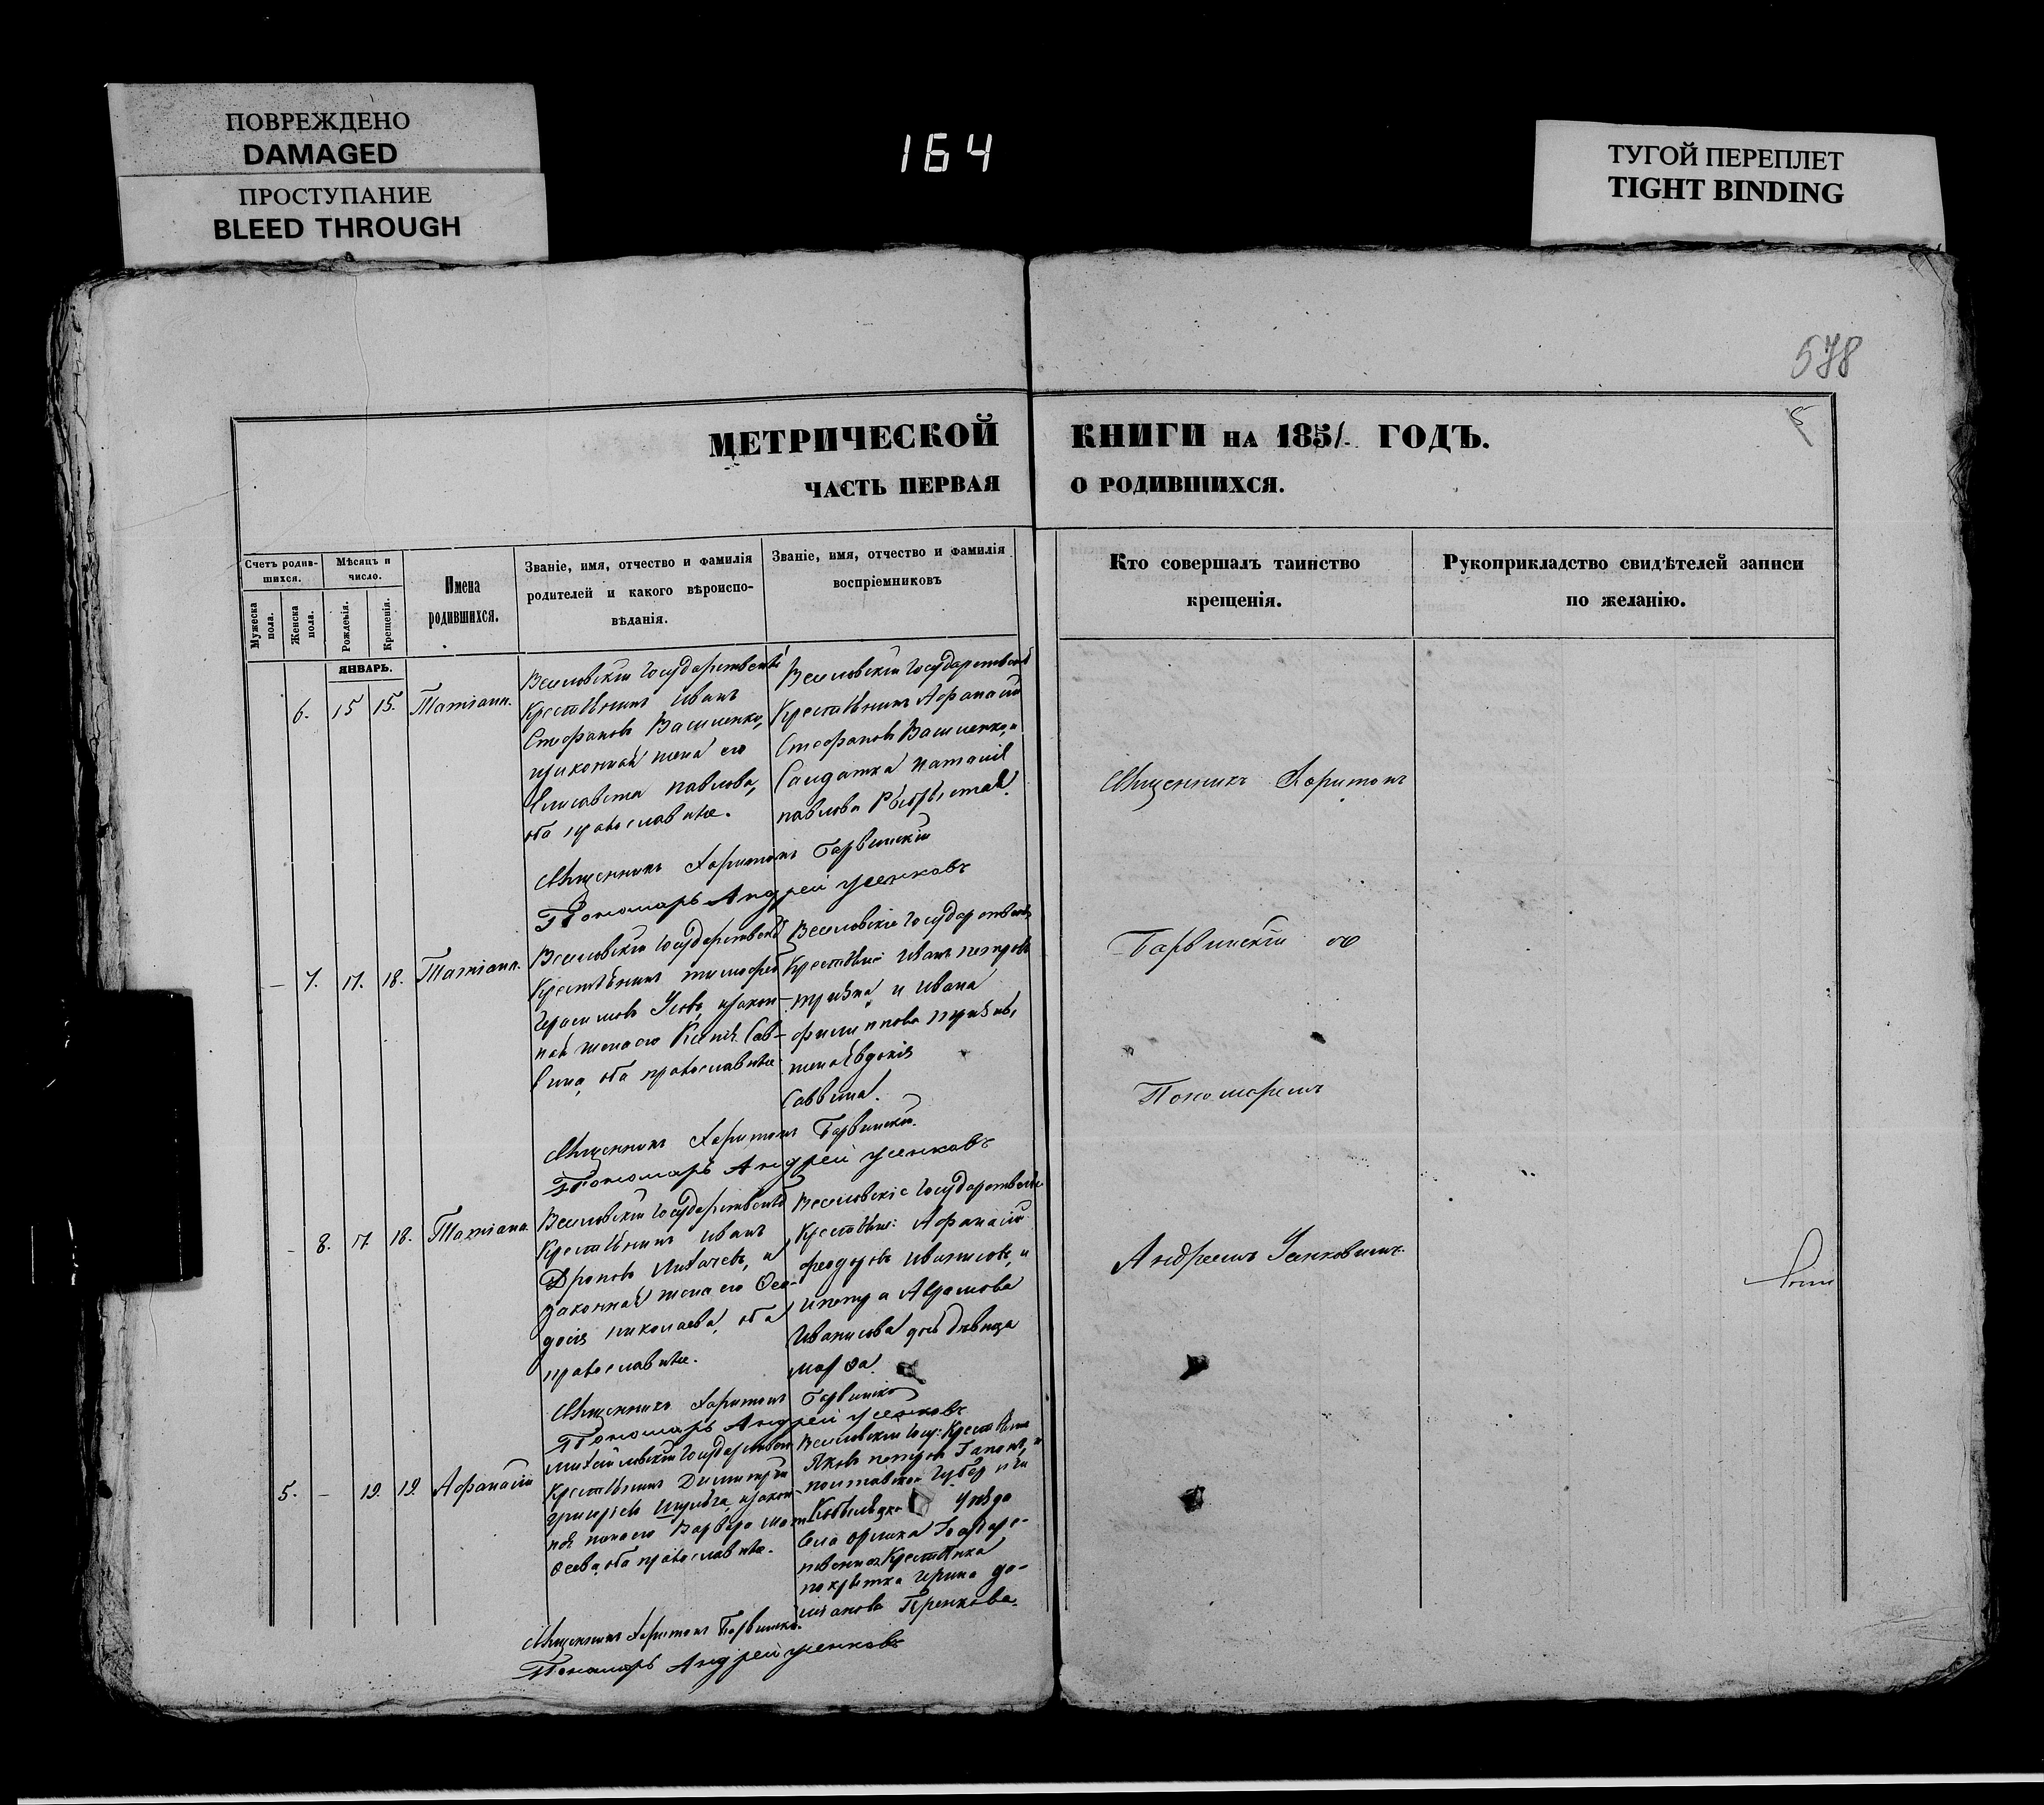 ПОВРЕЖДЕНО
DAMAGED
ПРОСТУПАНИЕ
BLEED THROUGH
164
ТУГОЙ ПЕРЕПЛЕТ
TIGHT BINDING
578
5
МЕТРИЧЕСКОЙ КНИГИ НА 1851. ГОДЪ.
ЧАСТЬ ПЕРВАЯ О РОДИВШИХСЯ.
Счетъ родив-
шихся.
Мужеска пола.
Женска пола.
Мѣсяцъ и
число.
Рожденія.
Крещенія.
Имена
родившихся.
Званіе, имя, отчество и фамилія
родителей и какого вѣроиспо-
вѣданія.
Званіе, имя, отчество и фамилія
воспріемниковъ
Кто совершалъ таинство
крещенія.
Рукоприкладство свидѣтелей записи
по желанію.
ЯНВАРЬ.
6. 15 15. Татіана.
Веселовскій Государственный
Крестьянинъ Иванъ
Стефановъ Василенко,
изаконная жена его
Елисавета павлова,
оба православные.
Веселовскій Государственный
Крестьянинъ Афанасій
Стефановъ Василенко, и
Салдатка наталія
павлова
Священникъ Харитонъ Барвинскій
Пономарь Андрей Усенковъ
– 7. 17. 18. Татіана.
Веселовскій Государственный
Крестьянинъ тимофей
Герасимовъ Усовъ, изакон-
ная жена его Ксенія Сав-
вина, оба православные
Веселовскіе Государственные
Крестьяне Иванъ петровъ
и Ивана
филиппова
жена Евдокія
Саввина.
Священникъ Харитонъ Барвинскій.
Пономарь Андрей Усенковъ
– 8. 17. 18. Татіана.
Веселовскій Государственный
Крестьянинъ Иванъ
Лихачевъ, и
Законная жена его Фео-
досія николаева, оба
православные.
Веселовскіе Государственные
Крестьяне: Афанасій
феодоровъ и
ипетра Аврамова
дочь дѣвица
марфа.
Священникъ Харитонъ Барвинскій
Пономарь Андрей Усенковъ
5. – 19. 19. Афанасій
Михайловскій Государственный
Крестьянинъ Димитрій
Григорьевъ Шульга, изакон-
ная жена его Варвара мат-
феева, оба православные.
Веселовскій Госу: Крестьянинъ
Яковъ петровъ Гапонъ, и
полтавской Губерніи
Кобыляцкаго Уѣзда
Села орлика Государс-
твенная Крестьянка
покрытка Ирина
Священникъ Харитонъ Барвинскій.
Пономарь Андрей Усенковъ
Священникъ Харитонъ
Барвинскій со
Пономаремъ
Андреемъ Усенковымъ.